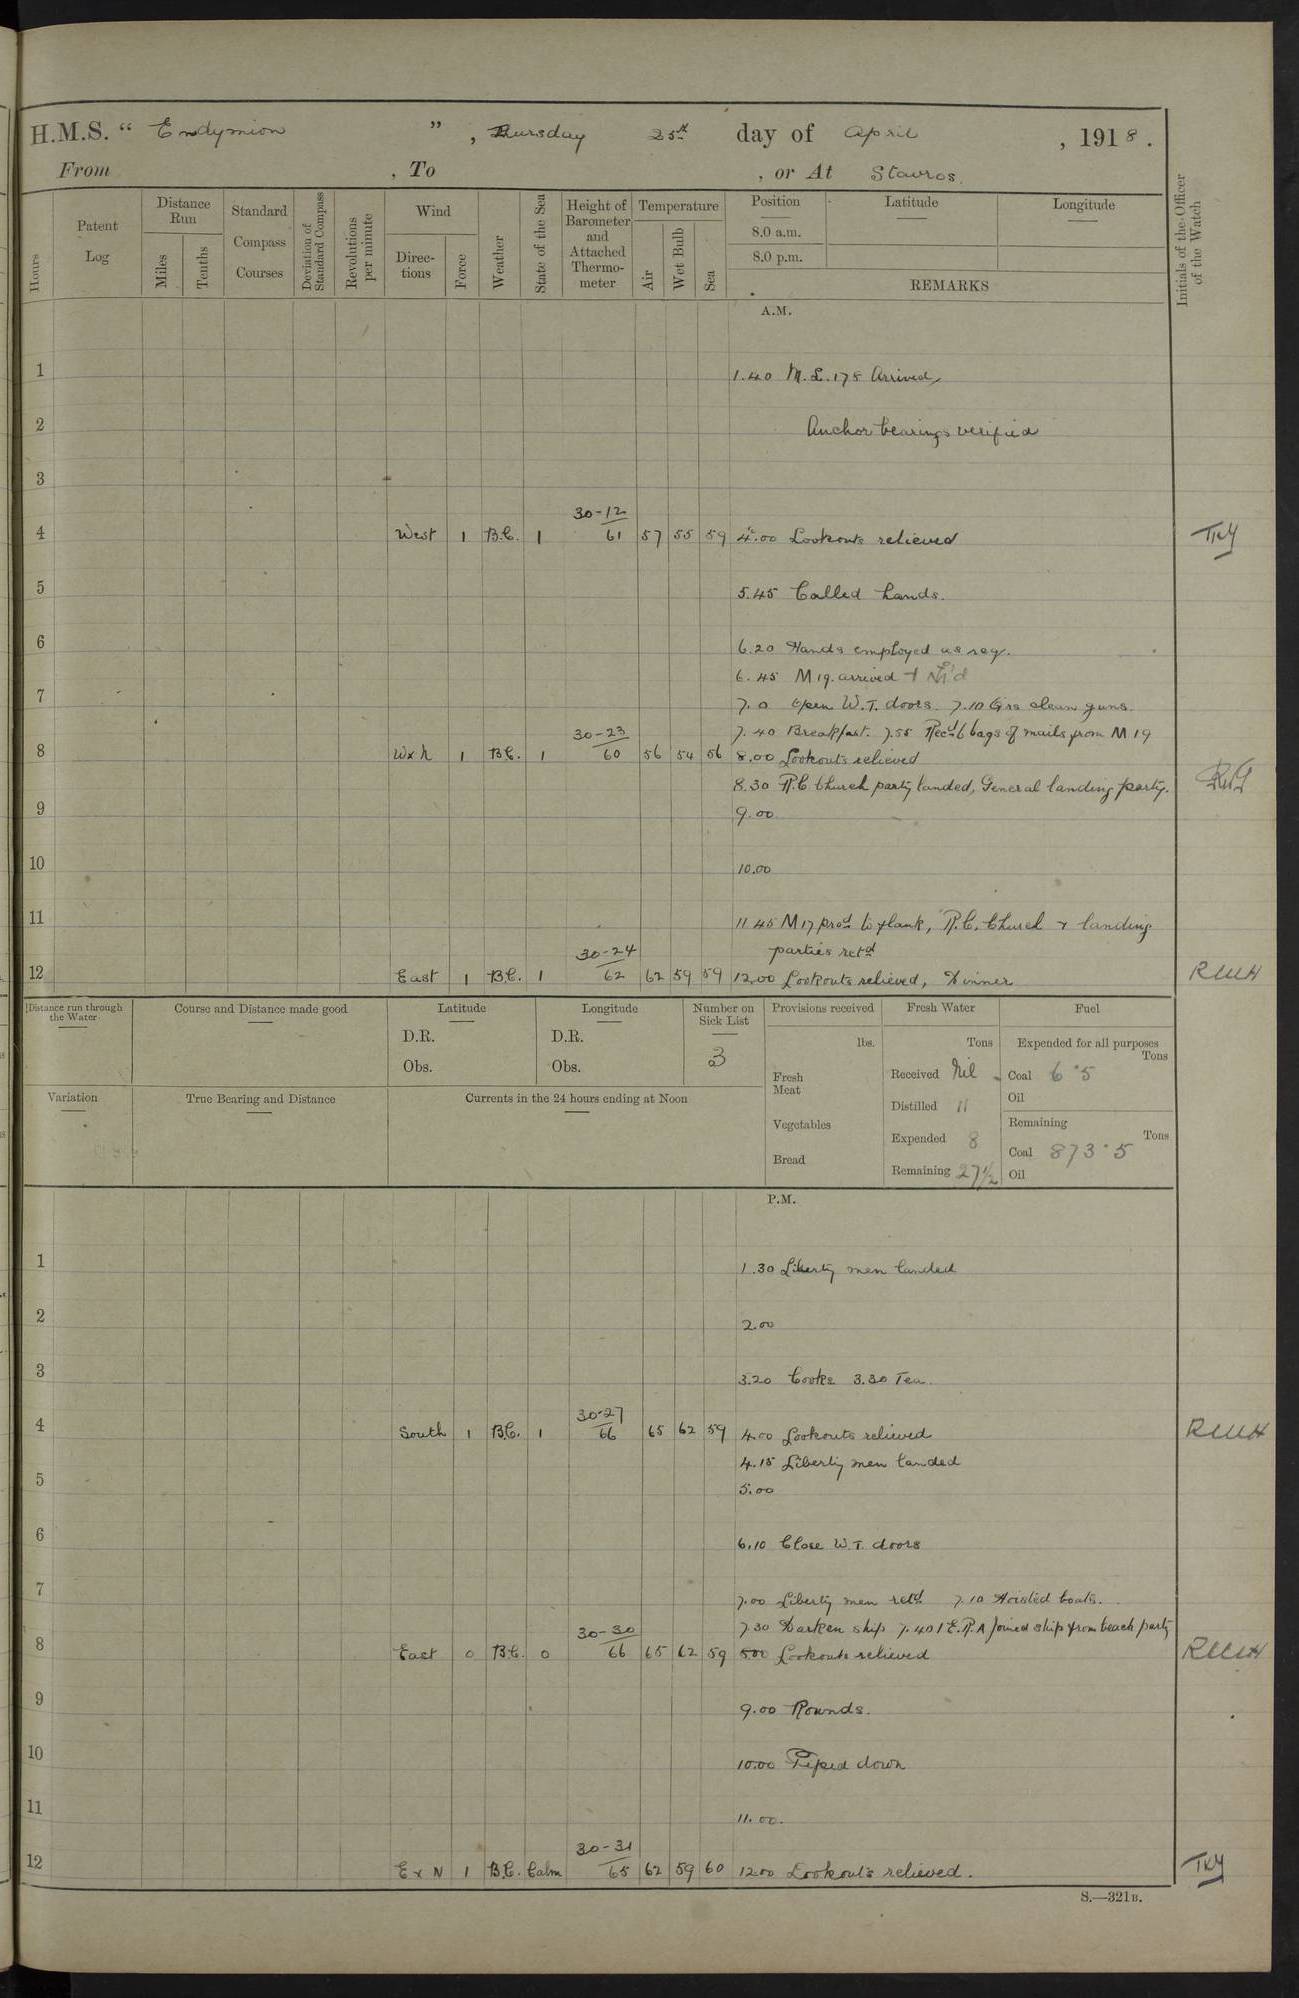 H.M.S. " Endymion ", Thursday 25th day of April, 1918.
From , To , or At Stavros.
Hours
Patent Log
Distance Run
Miles
Tenths
Standard Compass Courses
Deviation of Standard Compass
Revolutions per minute
Wind
Direc-tions
Force
Weather
State of the Sea
Height of Barometer and Attached Thermo-meter
Temperature
Air
Wet Bulb
Sea
Position
8.0 a.m.
8.0 p.m.
Latitude
Longitude
REMARKS
Initials of the Officer of the Watch
A.M.
1 1.40 M.L. 178 Arrived,
2 Anchor bearings verified
3
30-12
4 West 1 B.C. 1 61 57 55 59 4.00 Lookouts relieved TKY
5 5.45 Called hands.
6 6.20 Hands employed as req.
6.45 M19. arrived +
7 7.0 Open W.T. doors. 7.10 Grs clean guns.
30-23 7.40 Breakfast. 7.55 Recd 6 bags of mails from M19
8 WxN 1 B.C. 1 60 56 54 56 8.00 Lookouts relieved
8.30 R.C. Church party landed, General landing party.
9 9.00
10 10.00
11 11.45 M17 procd to flank, R.C. Church + landing
30-24 parties retd
12 East 1 B.C. 1 62 62 59 59 12.00 Lookouts relieved, Dinner RMH
Distance run through the Water
Course and Distance made good
Latitude
D.R.
Obs.
Longitude
D.R.
Obs.
Number on Sick List
3
Provisions received
lbs.
Fresh Meat
Vegetables
Bread
Fresh Water
Tons
Received Nil
Distilled 11
Expended 8
Remaining 27½
Fuel
Expended for all purposes
Tons
Coal 6.5
Oil
Remaining
Tons
Coal 873.5
Oil
Variation
True Bearing and Distance
Currents in the 24 hours ending at Noon
P.M.
1 1.30 Liberty men landed
2 2.00
3 3.20 Cooks 3.30 Tea.
30-27
4 South 1 B.C. 1 66 65 62 59 4.00 Lookouts relieved RMH
4.15 Liberty men landed
5 5.00
6 6.10 Close W.T. doors
7 7.00 Liberty men retd 7.10 Hoisted boats.
30-30 7.30 Darken ship 7.40 1 E.R.A joined ship from beach party
8 East 0 B.C. 0 66 65 62 59 8.00 Lookouts relieved RMH
9 9.00 Rounds.
10 10.00 Piped down
11 11.00.
30-31
12 ExN 1 B.C. Calm 65 62 59 60 12.00 Lookouts relieved. TKY
S.—321B.